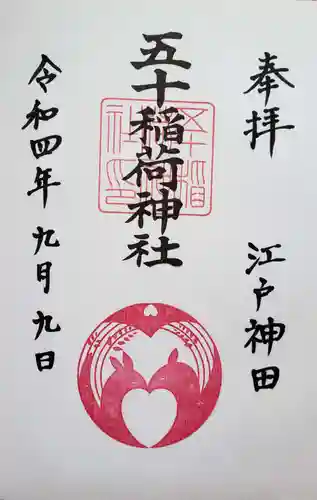 奉拝
江戸神田
五十稲荷神社
令和四年九月九日